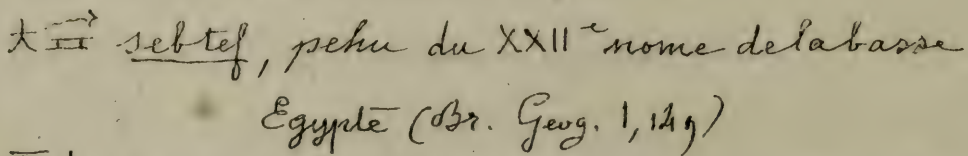 sebtef, pehu du XXIIe nome de la basse
Egypte (Br. Geog. 1,